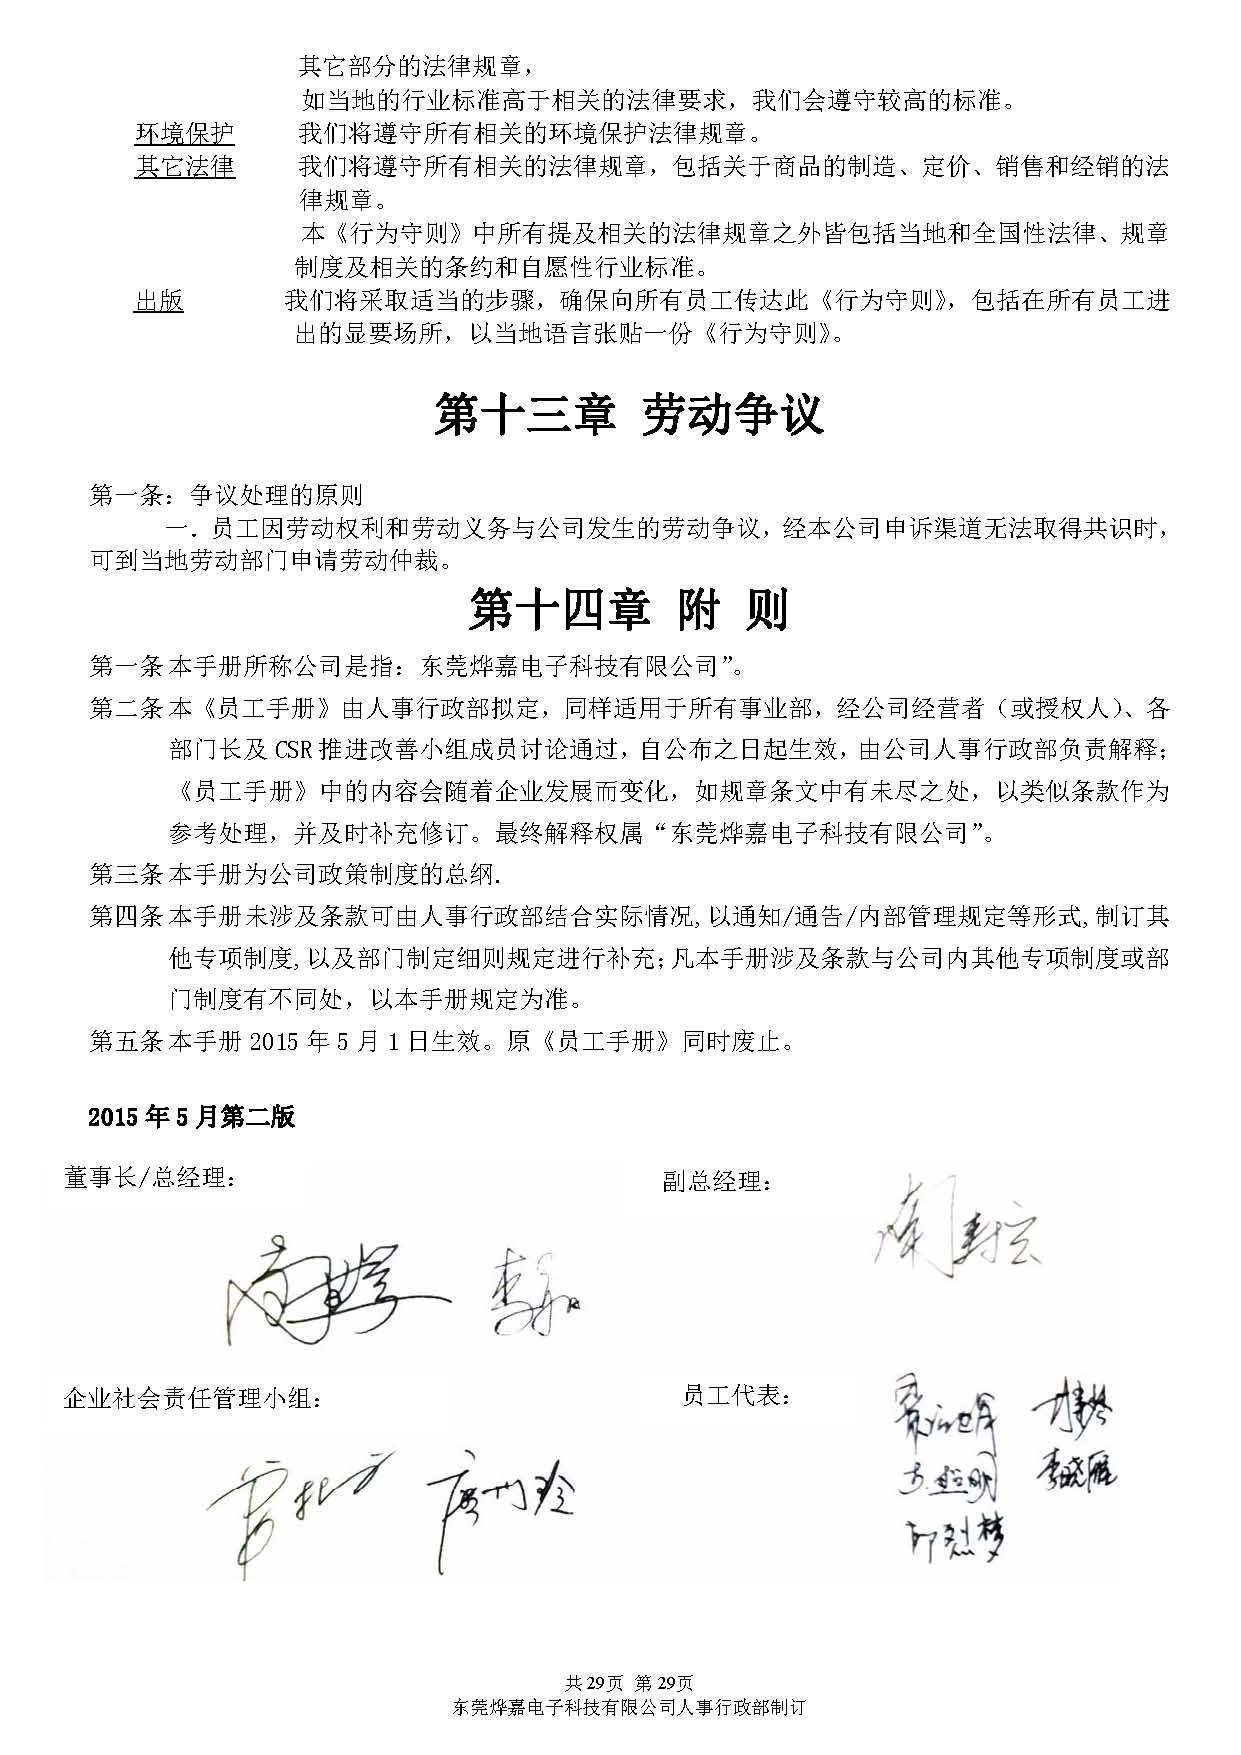 其它部分的法律规章，
如当地的行业标准高于相关的法律要求，我们会遵守较高的标准。
环境保护 我们将遵守所有相关的环境保护法律规章。
其它法律 我们将遵守所有相关的法律规章，包括关于商品的制造、定价、销售和经销的法
律规章。
本《行为守则》中所有提及相关的法律规章之外皆包括当地和全国性法律、规章
制度及相关的条约和自愿性行业标准。
出版 我们将采取适当的步骤，确保向所有员工传达此《行为守则》，包括在所有员工进
出的显要场所，以当地语言张贴一份《行为守则》。
第十三章 劳动争议
第一条：争议处理的原则
一．员工因劳动权利和劳动义务与公司发生的劳动争议，经本公司申诉渠道无法取得共识时，
可到当地劳动部门申请劳动仲裁。
第十四章 附 则
第一条 本手册所称公司是指：东莞烨嘉电子科技有限公司”。
第二条 本《员工手册》由人事行政部拟定，同样适用于所有事业部，经公司经营者（或授权人）、各
部门长及 CSR 推进改善小组成员讨论通过，自公布之日起生效，由公司人事行政部负责解释；
《员工手册》中的内容会随着企业发展而变化，如规章条文中有未尽之处，以类似条款作为
参考处理，并及时补充修订。最终解释权属“东莞烨嘉电子科技有限公司”。
第三条 本手册为公司政策制度的总纲.
第四条 本手册未涉及条款可由人事行政部结合实际情况,以通知/通告/内部管理规定等形式,制订其
他专项制度,以及部门制定细则规定进行补充;凡本手册涉及条款与公司内其他专项制度或部
门制度有不同处，以本手册规定为准。
第五条 本手册 2015 年 5 月 1 日生效。原《员工手册》同时废止。
2015 年 5 月第二版
董事长/总经理： 副总经理：
企业社会责任管理小组： 员工代表：
李晓雁
共 29页 第 29页
东莞烨嘉电子科技有限公司人事行政部制订